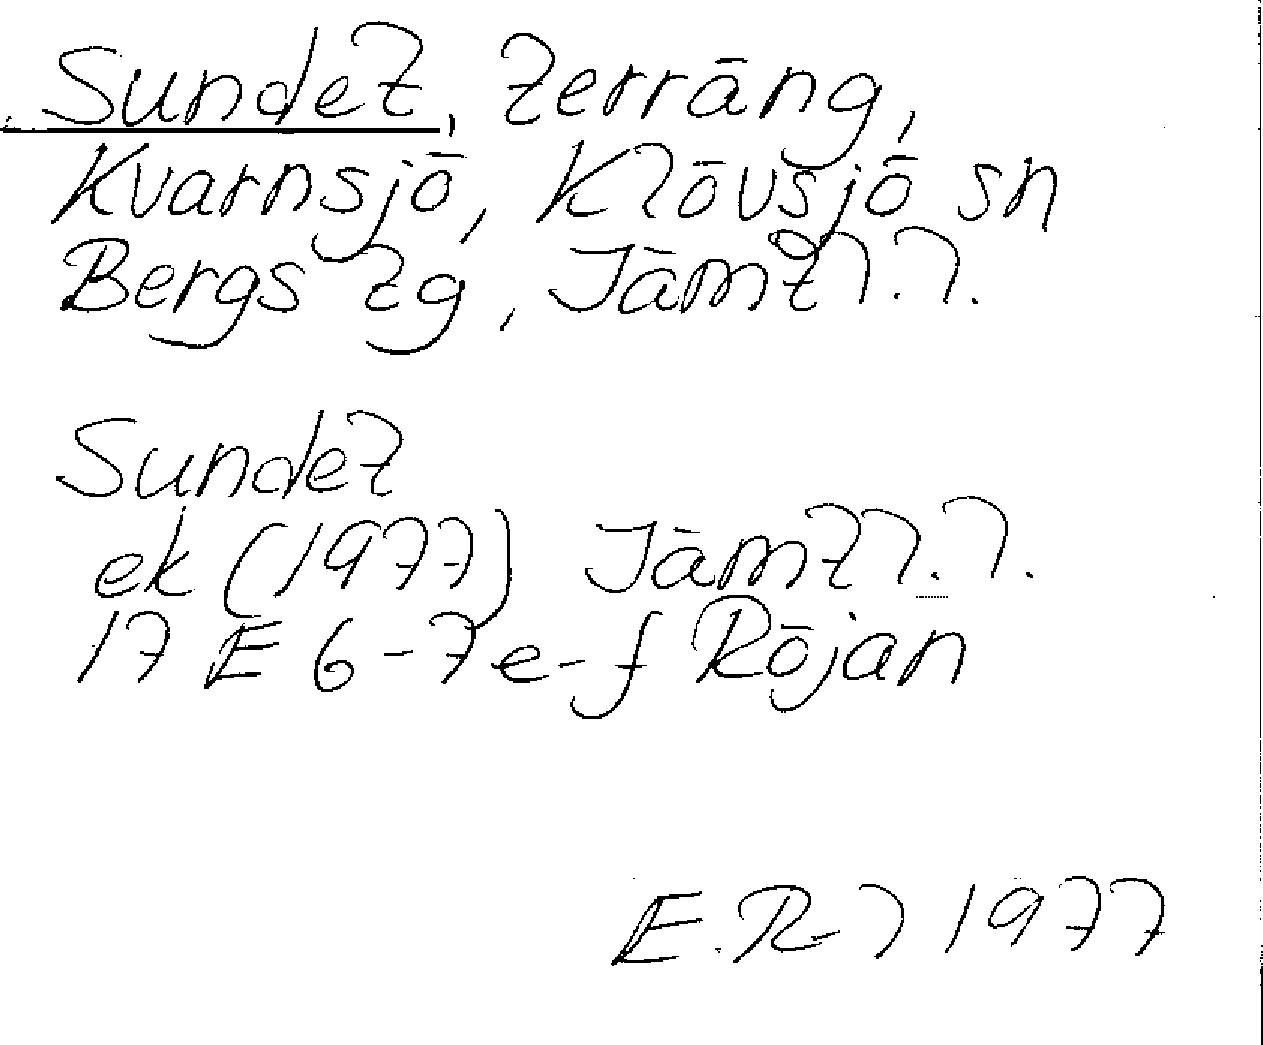 Sundet, terräng,
Kvarnsjö, Klövsjö sn
Bergs tg, Jämtl.l.
Sundet
ek (1977) Jämtl.l.
17 E 6-7 e-f Röjan
E.R-l 1977